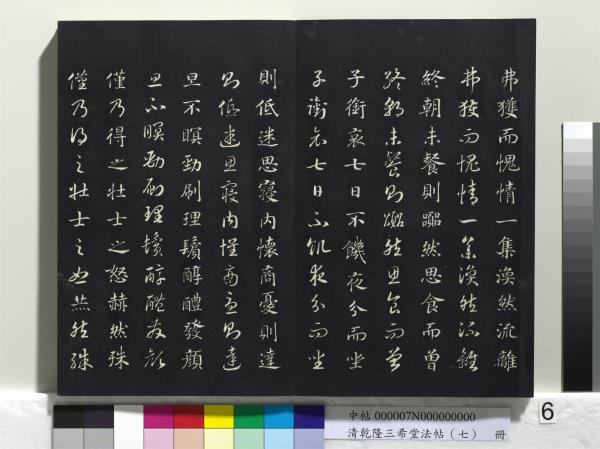 弗獲而愧情一集渙然流離
弗獲而愧情一集渙然流離
終朝未餐則嚻然思食而曾
終朝未餐則嚻然思食而曾
子銜哀七日不饑夜分而坐
子銜哀七日不飢夜分而坐
則低迷思寢内懷商憂則達
則低迷思寢内懷商憂則達
旦不瞑勁刷理鬢醇醴發顏
旦不瞑勁刷理鬢醇醴發顏
僅乃得之壮士之怒赫然殊
僅乃得之壮士之怒赫然殊
中帖 000007N000000000
清乾隆三希堂法帖（七） 冊
6